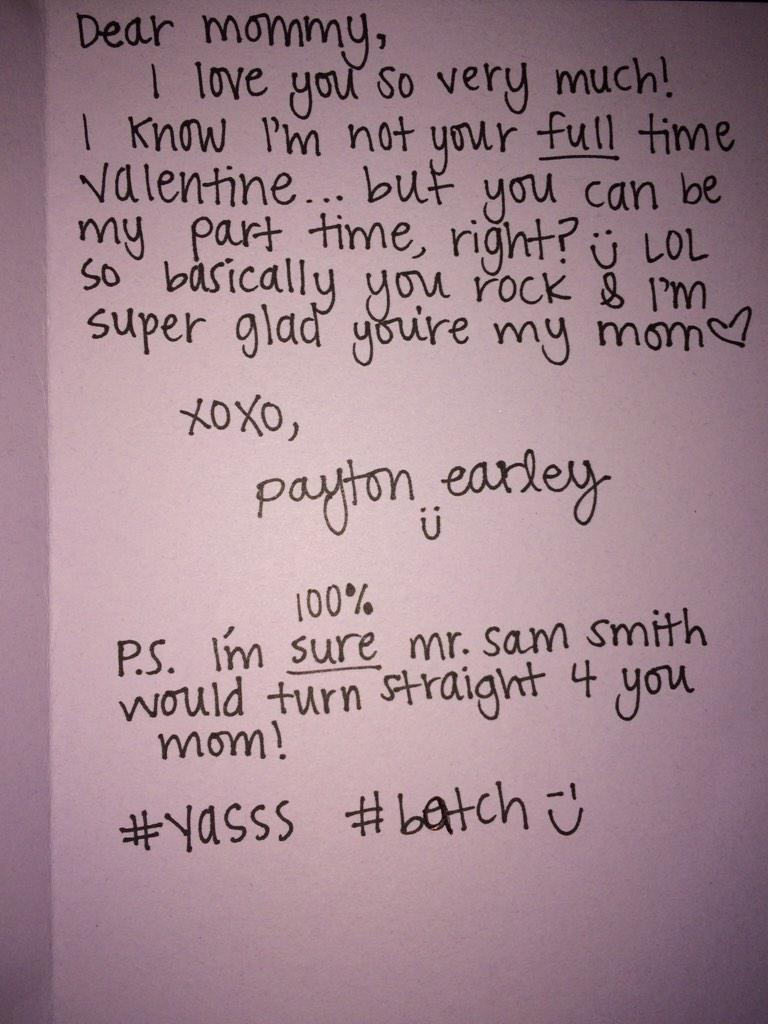 Dear mommy,
I love you so very much!
I know I'm not your full time
valentine... but you can be
my part time, right? ü LOL
so basically you rock & I'm
super glad you're my mom♡
xoxo,
payton earley
ü
100%
P.S. I'm sure mr. sam smith
would turn straight 4 you
mom!
#yasss #batch ü